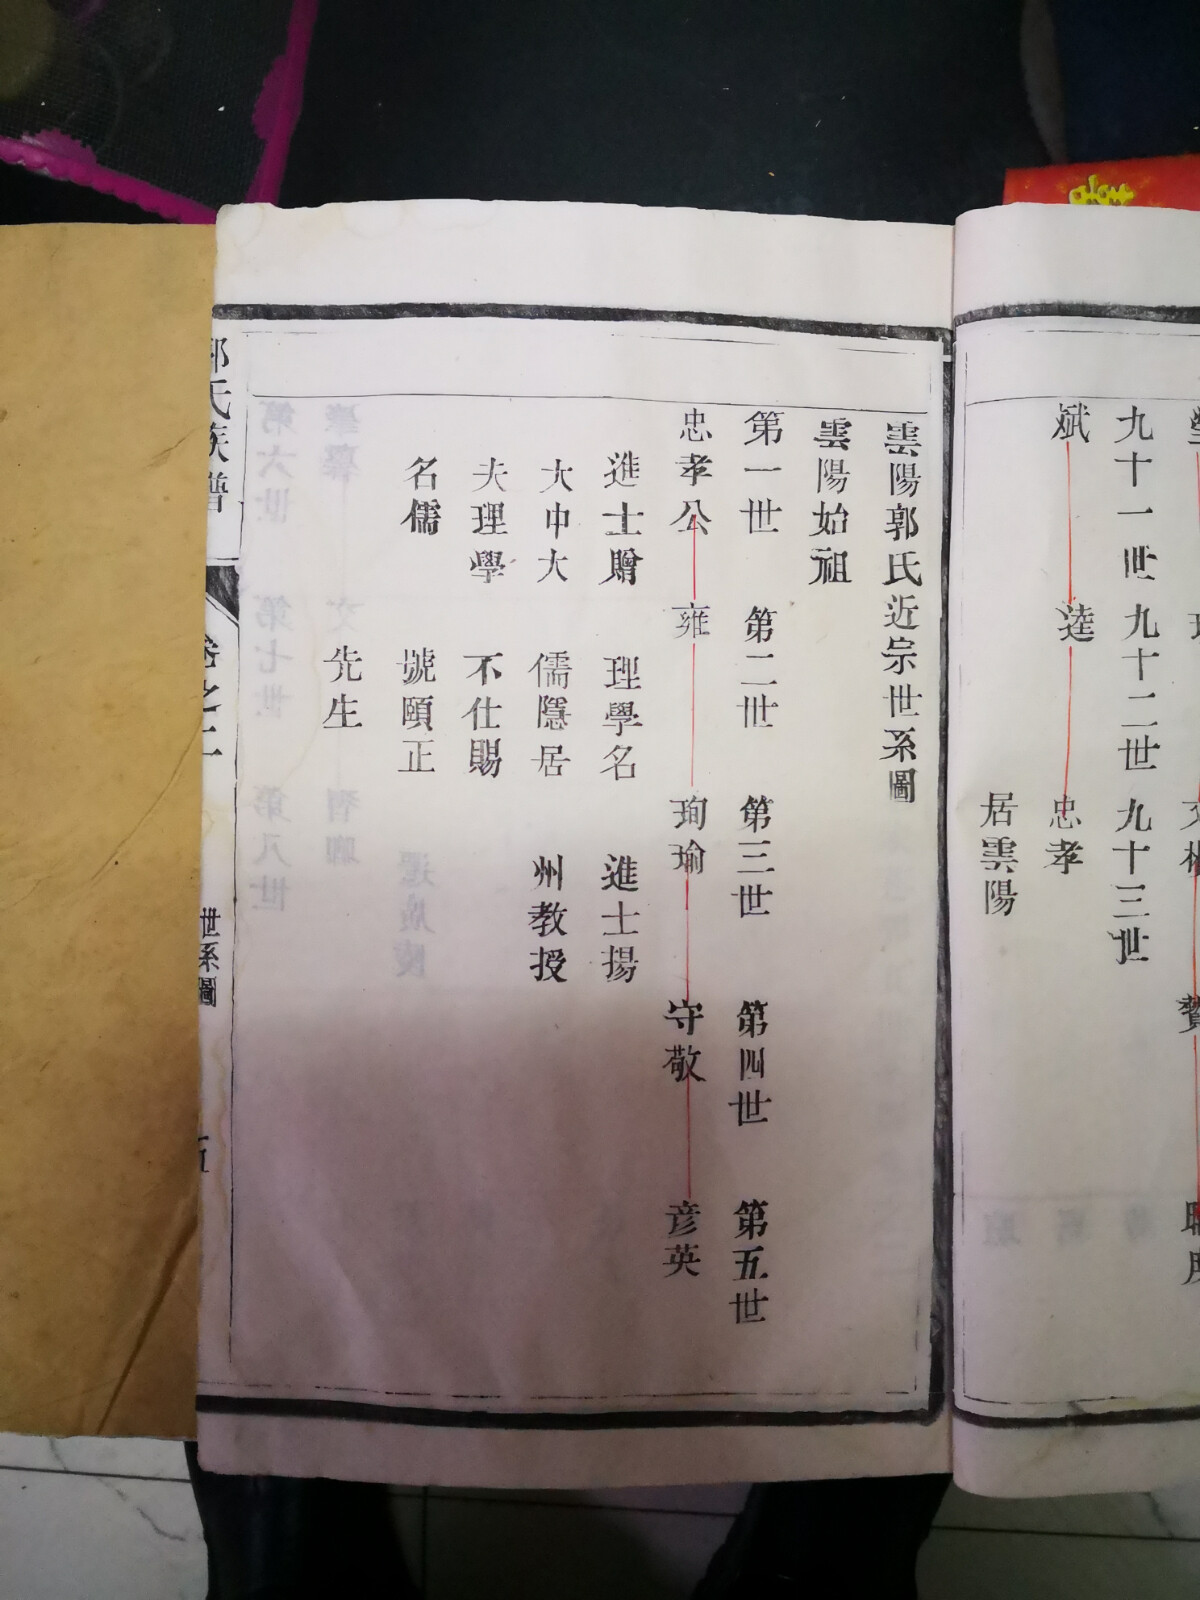 九十一世 九十二世 九十三世
斌 逵 忠孝
居雲陽
雲陽郭氏近宗世系圖
雲陽始祖
第一世 第二世 第三世 第四世 第五世
忠孝公 雍 珣瑜 守敬 彦英
進士贈 理學名 進士揚
大中大 儒隱居 州教授
夫理學 不仕賜
名儒 號頤正
先生
郭氏族譜 卷之二 世系圖 五